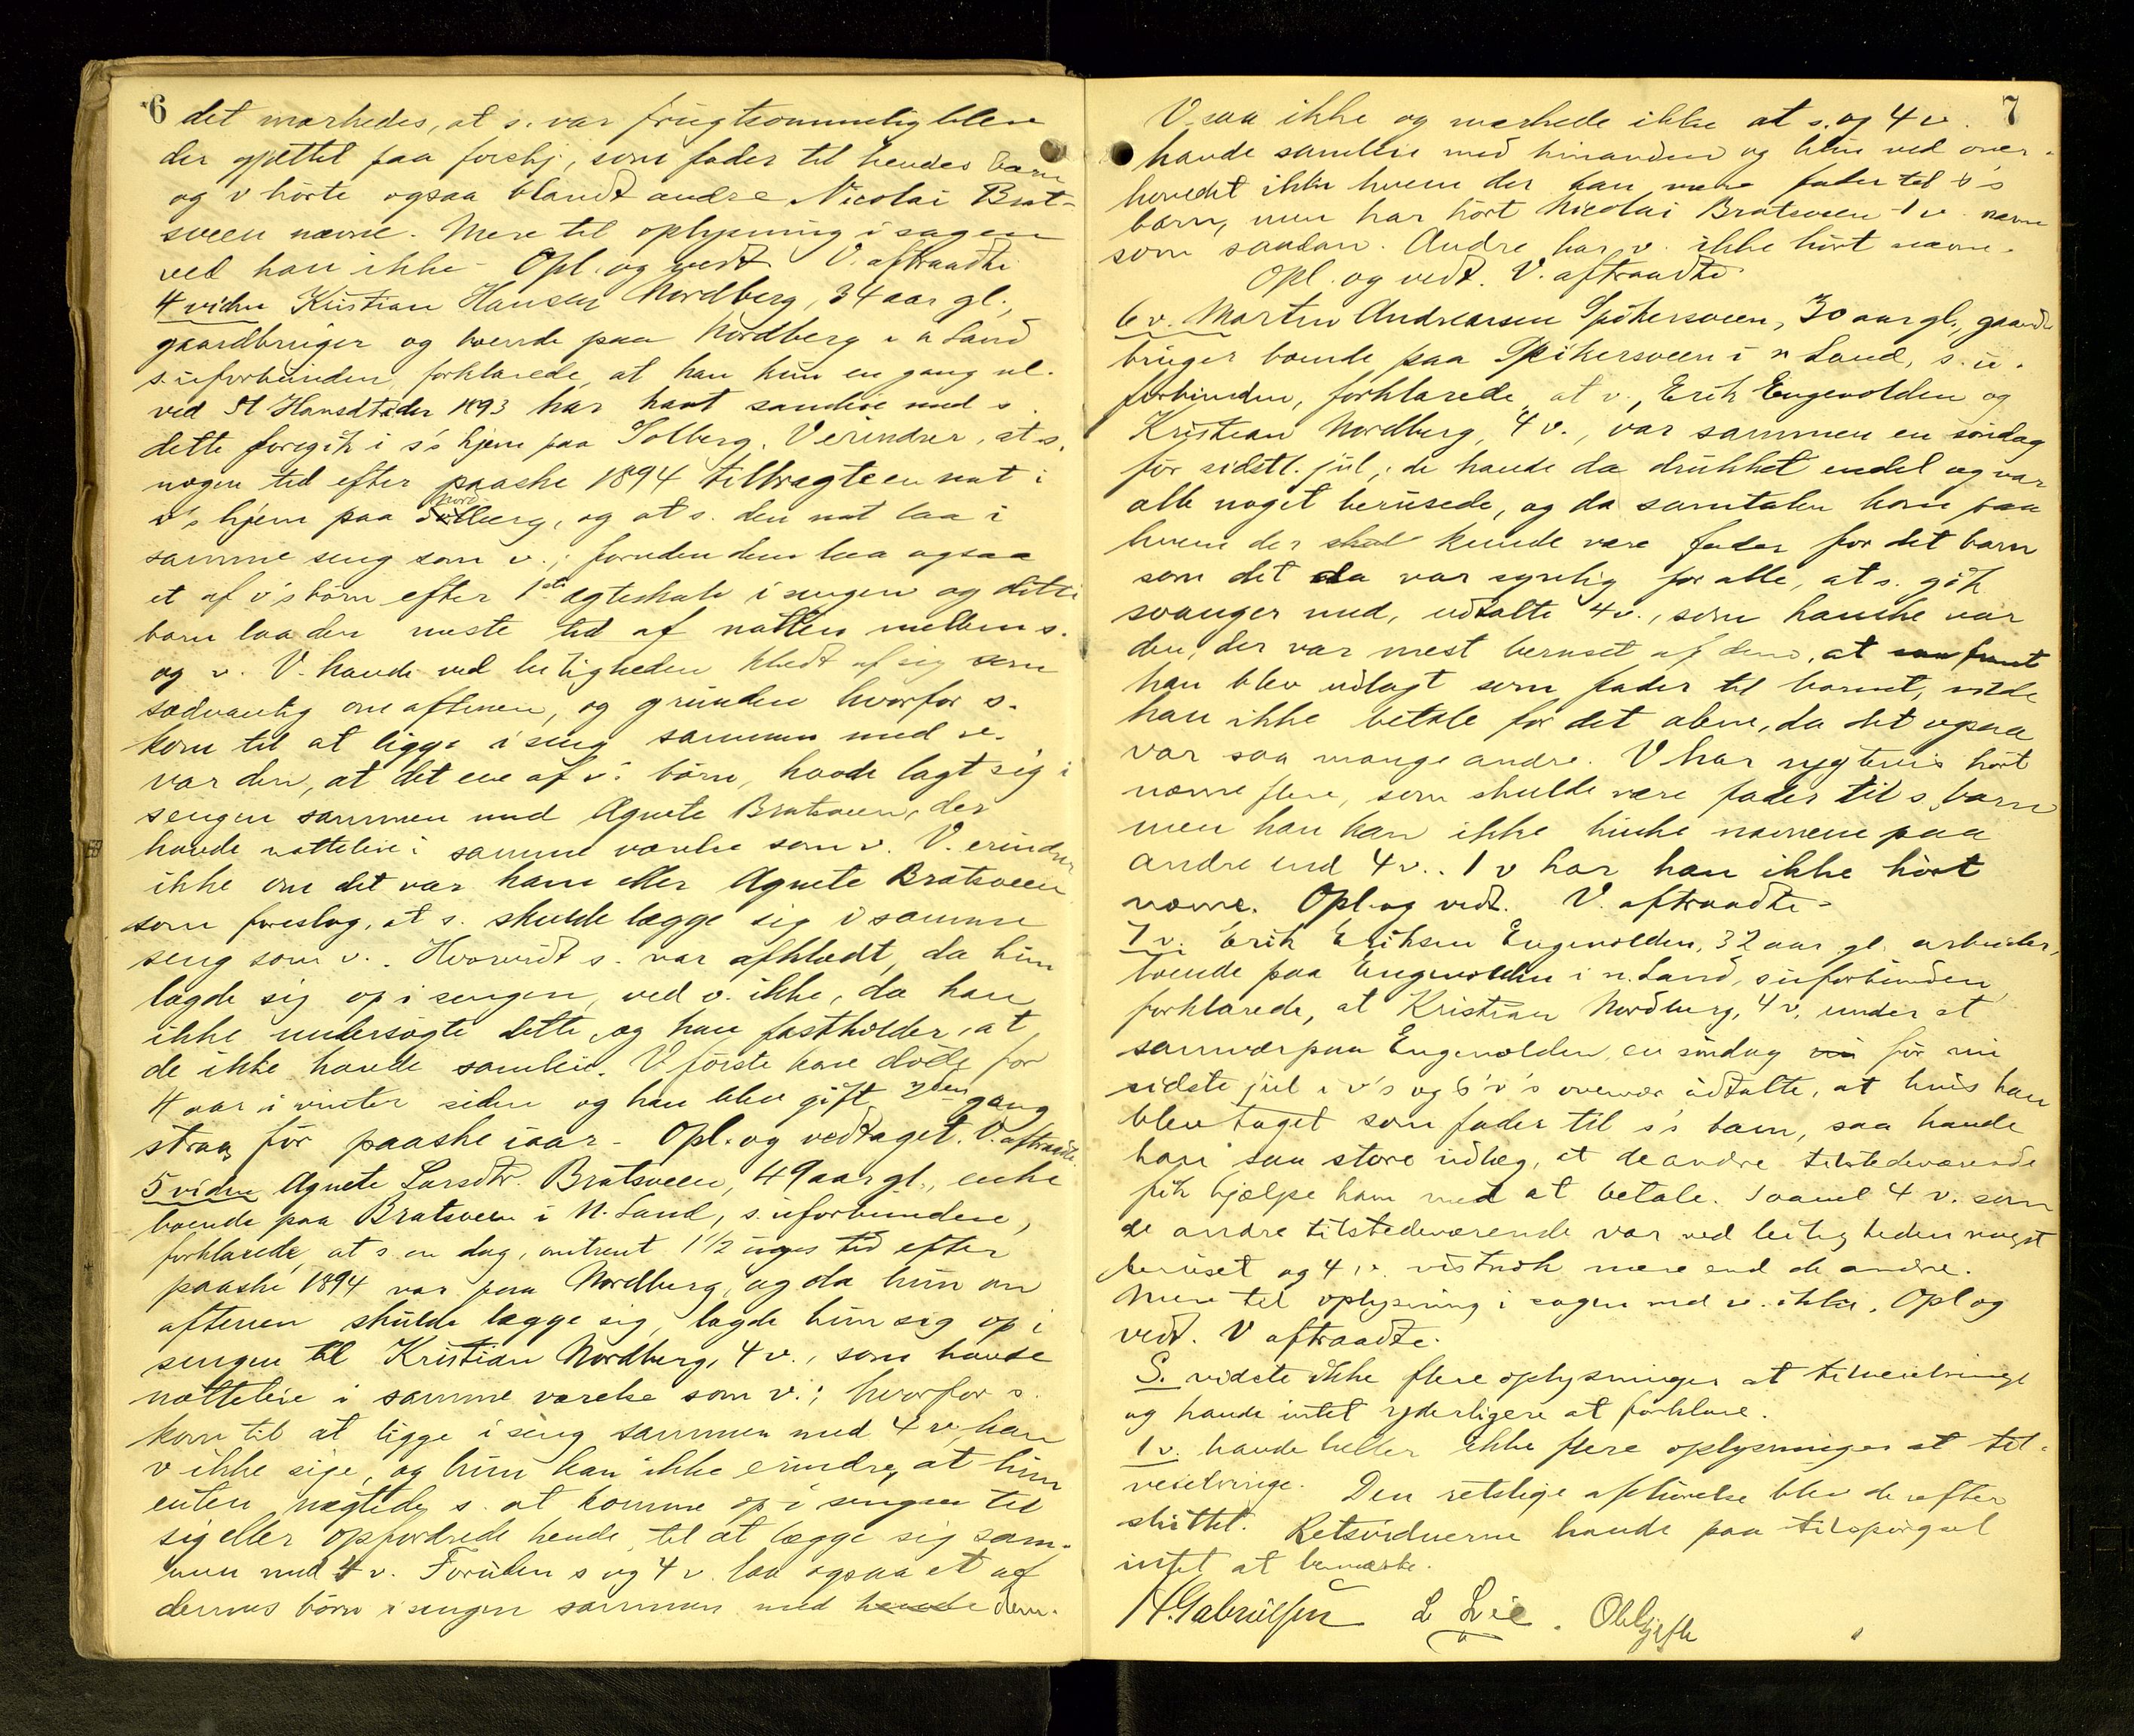 6
det mærkedes, at s. var frugtsommelig blev
der gjettet paa forskj., som fader til hendes barn
og v hørte ogsaa blandt andre Nicolai Brat-
sveen nævne. Mere til oplysning i sagen
ved han ikke - Opl. og vedt. V. aftraadte
4 vidne Kristian Hansen Nordberg, 34 aar gl.,
gaardbruger og boende paa Nordberg i n Land
s. uforbunden, forklarede, at han kun en gang
ved St Hansdtider 1893 har havt samleie med s.
dette foregik i s's hjem paa Solberg. V erindrer, at s.
nogen tid efter paaske 1894 tilbragte en nat i
v's hjem paa Nordberg, og at s. den nat laa i
samme seng som v.; foruden dem laa ogsaa
et af v's børn efter 1ste ægteskab i sengen og dette
barn laa den meste tid af natten mellem s.
og v. V. havde ved leiligheden klædt af sig som
sædvanlig om aftenen, og grunden hvorfor s.
kom til at ligge i seng sammen med v.
var den, at det ene af v's børn, havde lagt sig i
sengen sammen med Agnete Bratsveen, der
havde natteleie i samme værelse som v. V. erindrer
ikke om det var ham eller Agnete Bratsveen
som foreslog, at s. skulde lægge sig i samme
seng som v.. Hvorvidt s. var afklædt, da hun
lagde sig op i sengen, ved v. ikke, da han
ikke undersøgte dette, og han fastholder, at
de ikke havde samleie. V første kone døde for
4 aar i vinter siden og han blev gift 2den gang
strax før paaske iaar - Opl. og vedtaget. V. aftraadte.
5 vidne Agnete Larsdtr. Bratsveen, 49 aar gl., enke
boende paa Bratsveen i N. Land, s. uforbunden,
forklarede, at s. en dag, omtrent 1 1/2 uges tid efter
paaske 1894 var paa Nordberg, og da hun om
aftenen skulde lægge sig, lagde hun sig op i
sengen til Kristian Nordberg, 4 v., som havde
natteleie i samme værelse som v.; hvorfor s.
kom til at ligge i seng sammen med 4 v, kan
v ikke sige, og hun kan ikke erindre, at hun
enten nægtede s. at komme op i sengen til
sig eller opfordrede hende, til at lægge sig sam-
men med 4 v. Foruden s og 4 v. laa ogsaa et af
dennes børn i sengen sammen med hende dem.
7
V. saa ikke og mærkede ikke at s. og 4 v.
havde samleie med hinanden og hun ved over-
hovedet ikke hvem der kan være fader til s's
barn, men har hørt Nicolai Bratsveen 1 v. nævne
som saadan. Andre har v. ikke hørt nævne.
Opl. og vedt. V. aftraadte
6 v. Martin Andreassen Spikersveen, 30 aar gl., gaard-
bruger boende paa Spikersveen i n Land, s. u-
forbunden, forklarede, at v., Erik Engevolden og
Kristian Nordberg, 4 v., var sammen en søndag
før sidstl. jul; de havde da drukket endel og var
alle noget berusede, og da samtalen kom paa
hvem der skul kunde være fader for det barn
som det da var synlig for alle, at s. gik
svanger med, udtalte 4 v., som kanske var
den, der var mest beruset af dem, at
han blev udlagt som fader til barnet, vilde
han ikke betale for det alene, da det ogsaa
var saa mange andre. V har rygtevis hørt
nævne flere, som skulde være fader til s, barn
men han kan ikke huske navnene paa
andre end 4 v.. 1 v har han ikke hørt
nævne. Opl. og vedt. V. aftraadte -
7 v. Erik Eriksen Engevolden, 32 aar gl. arbeider,
boende paa Engevolden i n. Land, s uforbunden
forklarede, at Kristian Nordberg, 4 v, under et
samvær paa Engevolden, en søndag før
sidste jul i v's og 6 v's overvær udtalte, at hvis han
blev taget som fader til s's barn, saa havde
han saa store udlæg, at de andre tilstedeværende
fik hjælpe ham med at betale. Saavel 4 v. som
de andre tilstedeværende var ved leiligheden noget
beruset og 4 v. vistnok mere end de andre.
Mere til oplysning i sagen ved v. ikke. Opl og
vedt. V aftraadte.
S. vidste ikke flere oplysninger at tilveiebringe
og havde intet yderligere at forklare.
1 v. havde heller ikke flere oplysninger at til-
veiebringe. Den retslige afhørelse blev derefter
sluttet. Retsvidnerne havde paa tilspørgsel
intet at bemærke.
H. Gabrielsen L Lie.